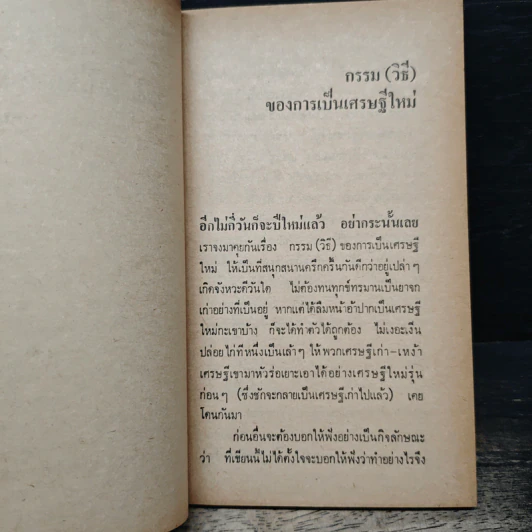 กรรม (วิธี)
ของการเป็นเศรษฐีใหม่
อีกไม่กี่วันก็จะปีใหม่แล้ว อย่ากระนั้นเลย
เราจงมาคุยกันเรื่อง กรรม (วิธี) ของการเป็นเศรษฐี
ใหม่ ให้เป็นที่สนุกสนานครึกครื้นกันดีกว่าอยู่เปล่า ๆ
เกิดจังหวะดีวันใด ไม่ต้องทนทุกข์ทรมานเป็นยาจก
เก่าอย่างที่เป็นอยู่ หากแต่ได้ลืมหน้าอ้าปากเป็นเศรษฐี
ใหม่กะเขาบ้าง ก็จะได้ทำตัวได้ถูกต้อง ไม่เงอะเงิ่น
ปล่อยไก่ทีหนึ่งเป็นเล้า ๆ ให้พวกเศรษฐีเก่า-เหง้า
เศรษฐีเขามาหัวร่อเยาะเอาได้อย่างเศรษฐีใหม่รุ่น
ก่อน ๆ (ซึ่งชักจะกลายเป็นเศรษฐีเก่าไปแล้ว) เคย
โดนกันมา
ก่อนอื่นจะต้องบอกให้ฟังอย่างเป็นกิจลักษณะ
ว่า ที่เขียนนี้ไม่ได้ตั้งใจจะบอกให้ฟังว่าทำอย่างไรจึง